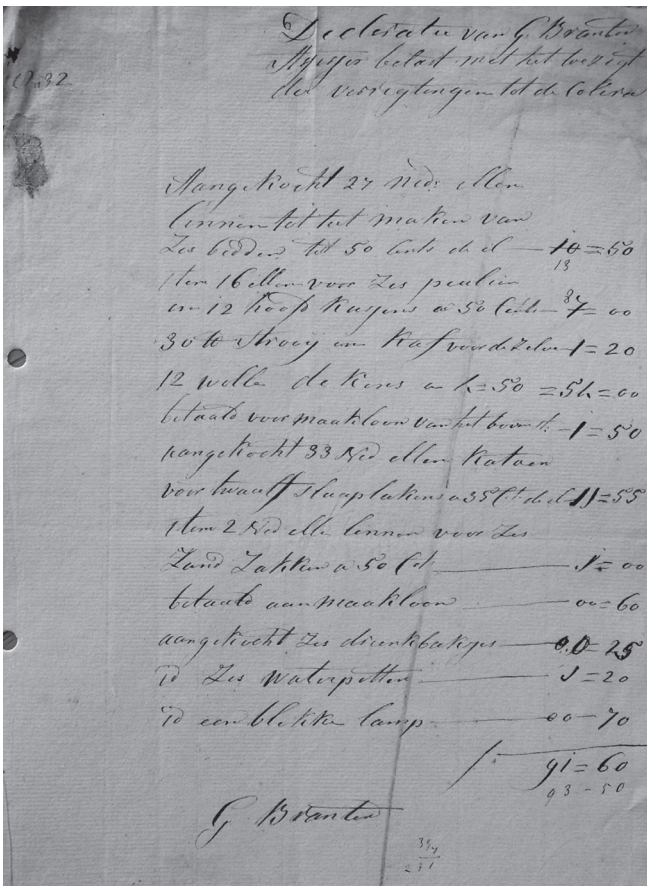 6
Declaratie van G. Branten
belast met het toezigt
der verrigtingen tot de Colera
1832
Aangekocht 27 Ned: ellen
linnen tot het maken van
Zes bedden tot 50 Cents de el — 10 = 50
13
Item 16 ellen voor Zes peulen
en 12 hoofd Kussens a 50 Cents — 7 = 00
30 Strooij en Kaf voor de Zelve 1 = 20
12 wolle dekens a 4=50 = 54 = 00
betaald voor maakloon van het bovenst. — 1 = 50
aangekocht 33 Ned ellen Katoen
voor twaalf slaaplakens a 35 Ct. de el 11 = 55
Item 2 Ned elle linnen voor Zes
Zand Zakken a 50 Ct — 1 = 00
betaald aan maakloon — 00 = 60
aangekocht Zes drinkbakjes — 0.0 = 25
id Zes waterpotten — 1 = 20
id een blikke lamp — 00 — 70
91 = 60
93 - 50
G Branten